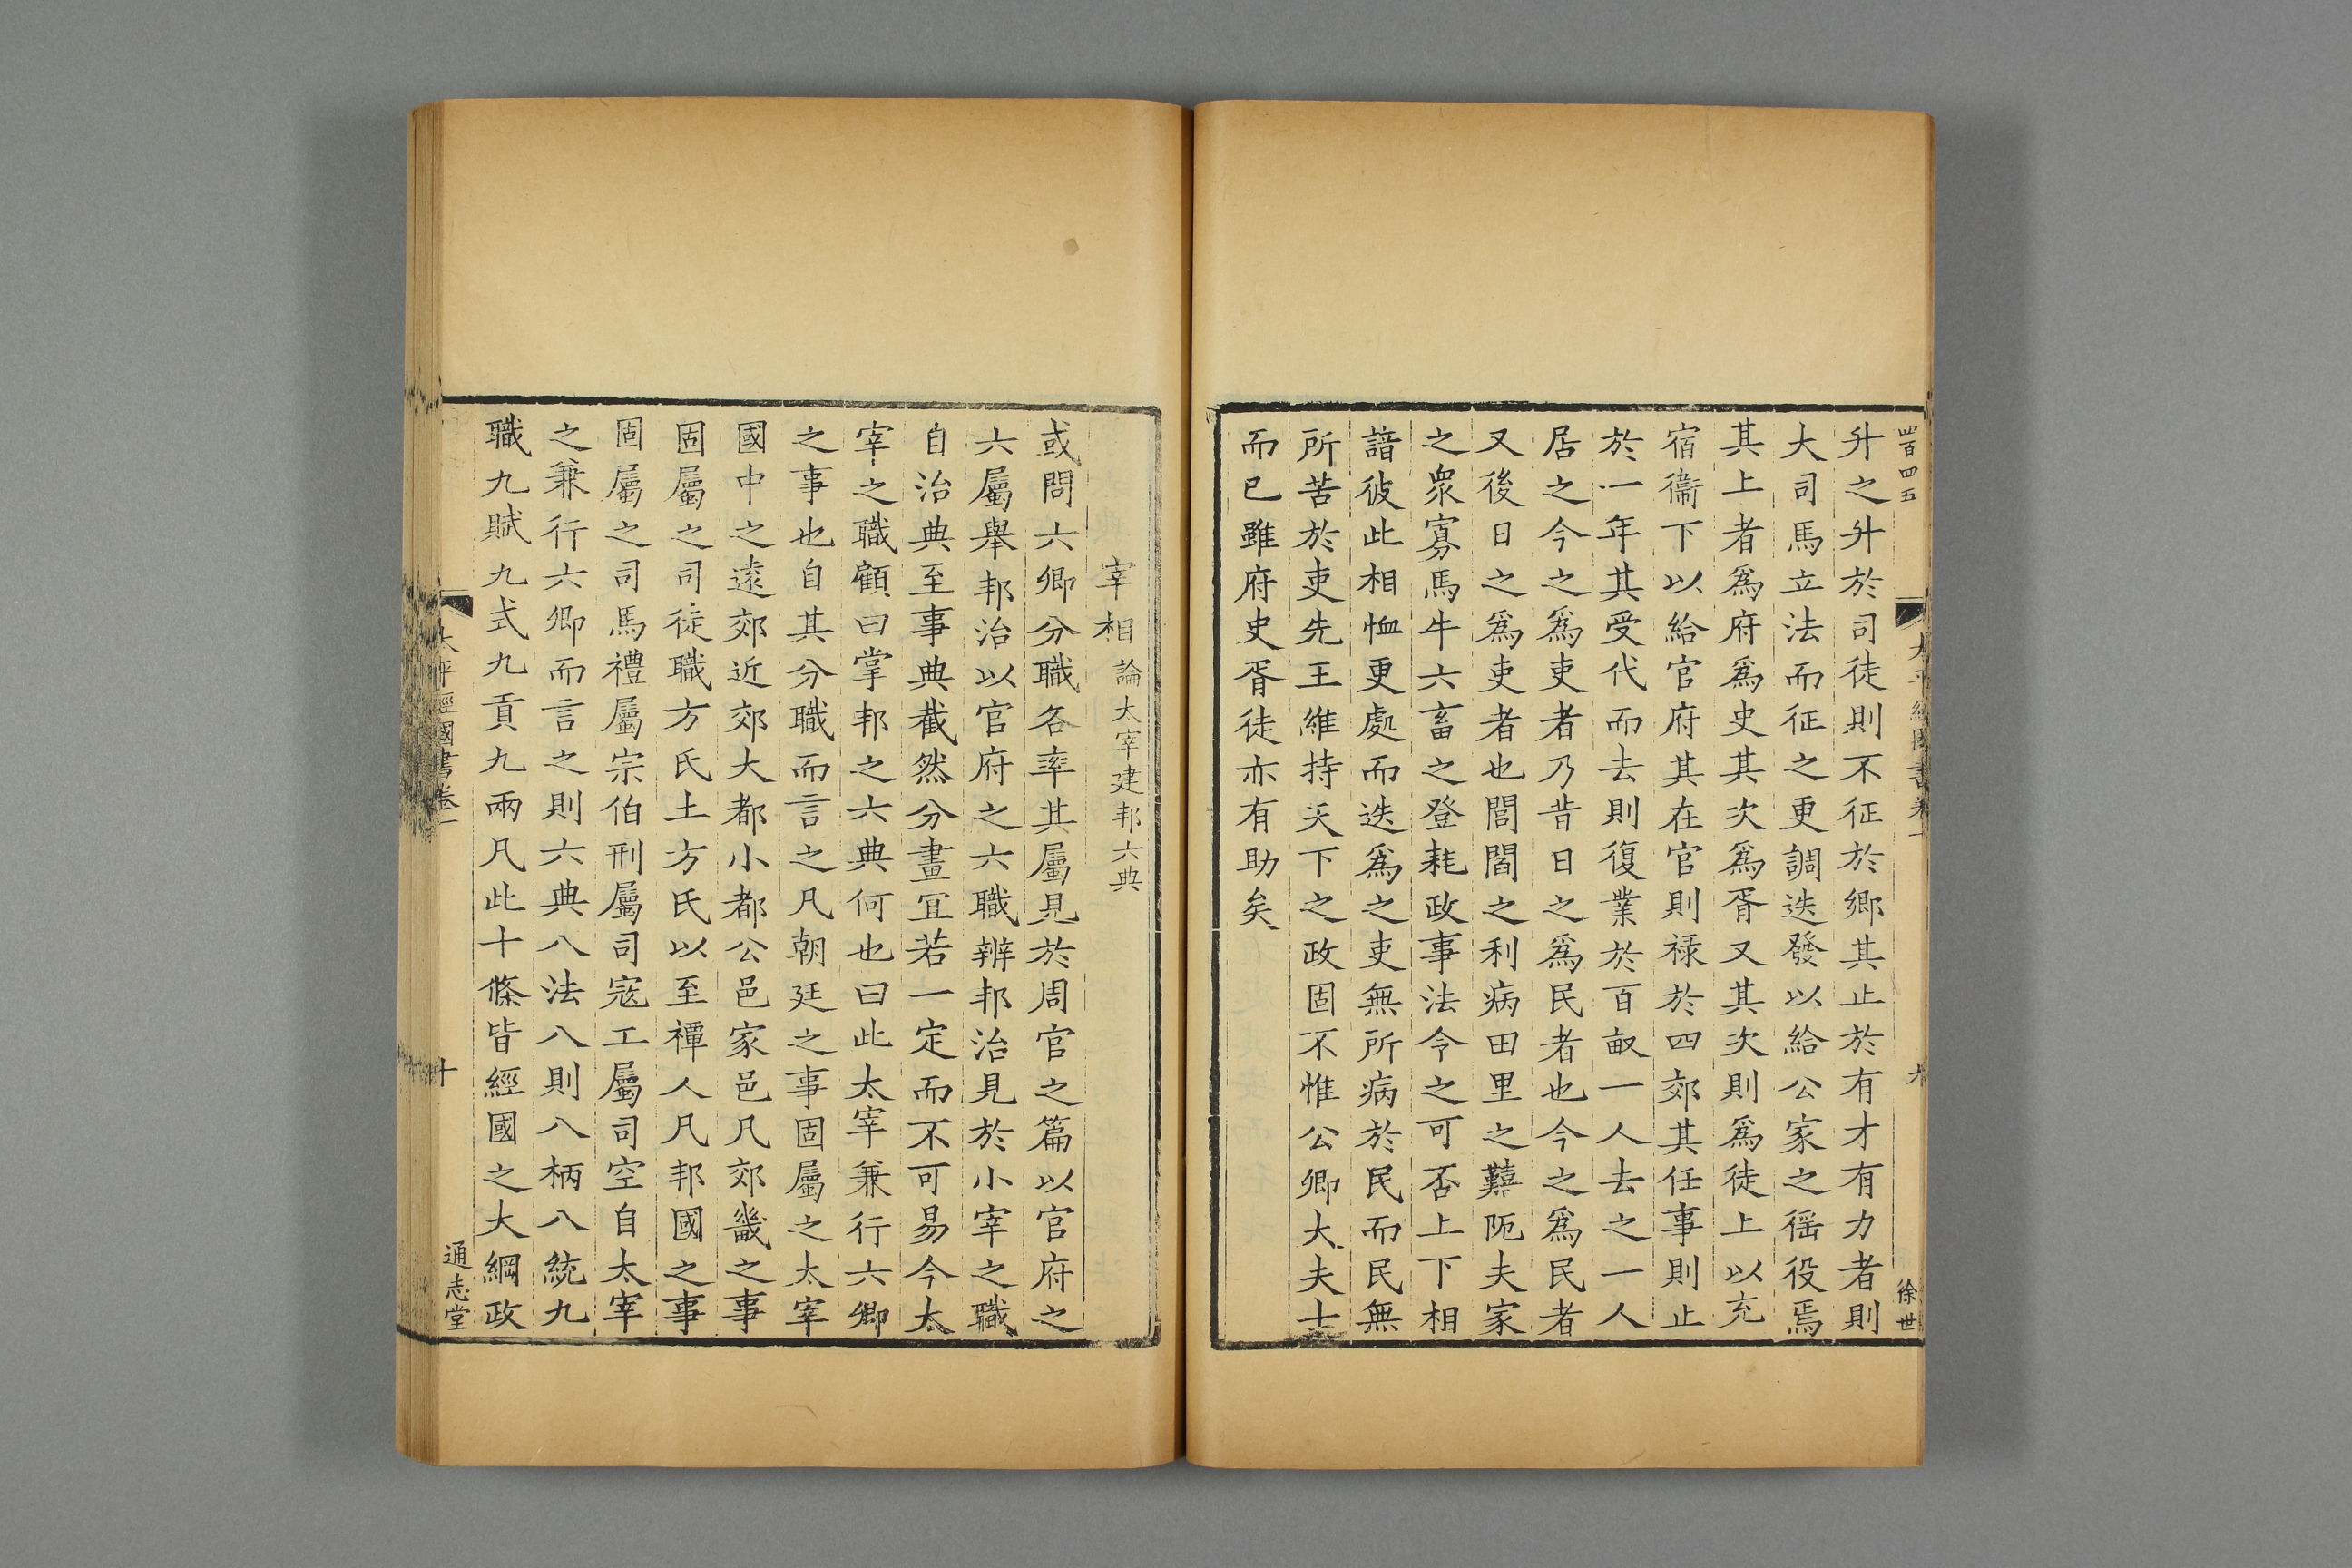 四百四五
太平經國書卷一
九
徐世
升之升於司徒則不征於鄉其止於有才有力者則
大司馬立法而征之更調迭發以給公家之徭役焉
其上者爲府爲史其次爲胥又其次則爲徒上以充
宿衞下以給官府其在官則禄於四郊其任事則止
於一年其受代而去則復業於百畝一人去之一人
居之今之爲吏者乃昔日之爲民者也今之爲民者
又後日之爲吏者也閭閻之利病田里之囏阨夫家
之衆寡馬牛六畜之登耗政事法令之可否上下相
諳彼此相恤更處而迭爲之吏無所病於民而民無
所苦於吏先王維持天下之政固不惟公卿大夫士
而已雖府史胥徒亦有助矣
宰相論太宰建邦六典
或問六卿分職各率其屬見於周官之篇以官府之
六屬舉邦治以官府之六職辨邦治見於小宰之職
自治典至事典截然分畫冝若一定而不可易今太
宰之職顧曰掌邦之六典何也曰此太宰兼行六卿
之事也自其分職而言之凡朝廷之事固屬之太宰
國中之遠郊近郊大都小都公邑家邑凡郊畿之事
固屬之司徒職方氏土方氏以至禫人凡邦國之事
固屬之司馬禮屬宗伯刑屬司寇工屬司空自太宰
之兼行六卿而言之則六典八法八則八柄八統九
職九賦九式九貢九兩凡此十條皆經國之大綱政
太平經國書卷一
十
通志堂